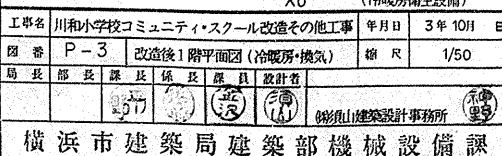 工事名 川和小学校コミュニティ・スクール改造その他工事 年月日 3年10月 日
図番 P-3 改造後1階平面図(冷暖房・換気) 縮尺 1/50
局長 部長 課長 係長 課員 設計者
金沢 須山
㈱須山建築設計事務所
横浜市建築局建築部機械設備課